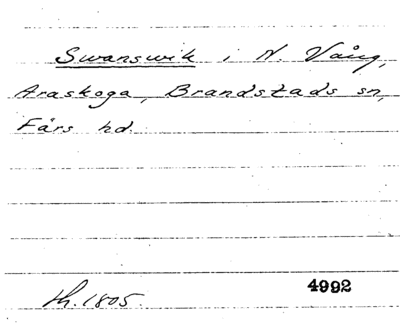 Swanswik i N. Vång,
Araskoga, Brandstads sn,
Färs hd.
4992
th. 1805.